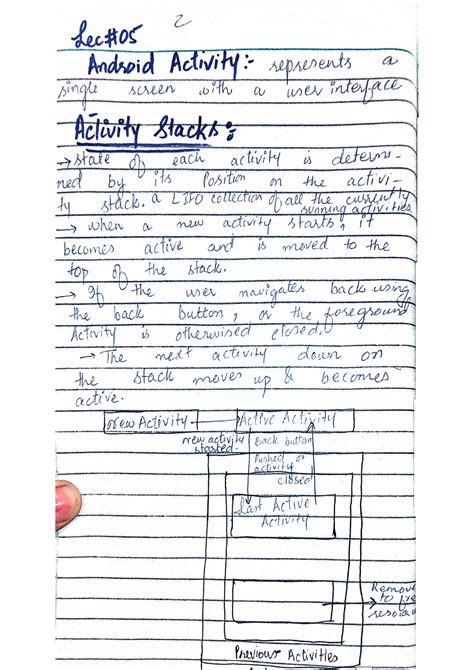 2
Lec#05
Android Activity:- represents a
single screen with a user interface
Activity Stacks:
→ state of each activity is determi-
ned by its Position on the activi-
ty stack. a LIFO collection of all the currently
running activities
→ when a new activity starts, it
becomes active and is moved to the
top of the stack.
→ If the user navigates back using
the back button, or the foreground
Activity is otherwised closed,
→ The next activity down on
the stack moves up & becomes
active.
New Activity Active Activity
new activity
started. Back button
Pushed or
activity
closed
Last Active
Activity
Remov
to fre
Previous Activities